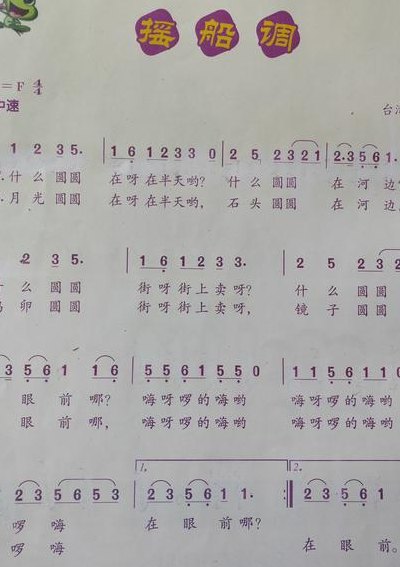 摇船调
= F 4/4
中速
1 2 35. 1 6 1233 0 2 5 2321 2.3561.
什么圆圆 在呀在半天哟? 什么圆圆 在河边
月光圆圆 在呀在半天哟, 石头圆圆 在河边
2 35. 1 6 1 2 3 3. 2 5 2 3 2
么圆圆 街呀街上卖呀? 什么圆圆
卵圆圆 街呀街上卖呀, 镜子圆圆
3 5 6 1 1 6 5 5 6 1 5 5 0 1 1 5 5 5
眼前哪? 嗨呀啰的嗨哟 嗨呀啰的嗨哟
眼前哪, 嗨呀啰的嗨哟 嗨呀啰的嗨
1. 2.
2 3 5 6 5 3 2 3 5 6 1 1. 2 3 5 6 1
啰嗨 在眼前哪?
啰嗨 在眼前。